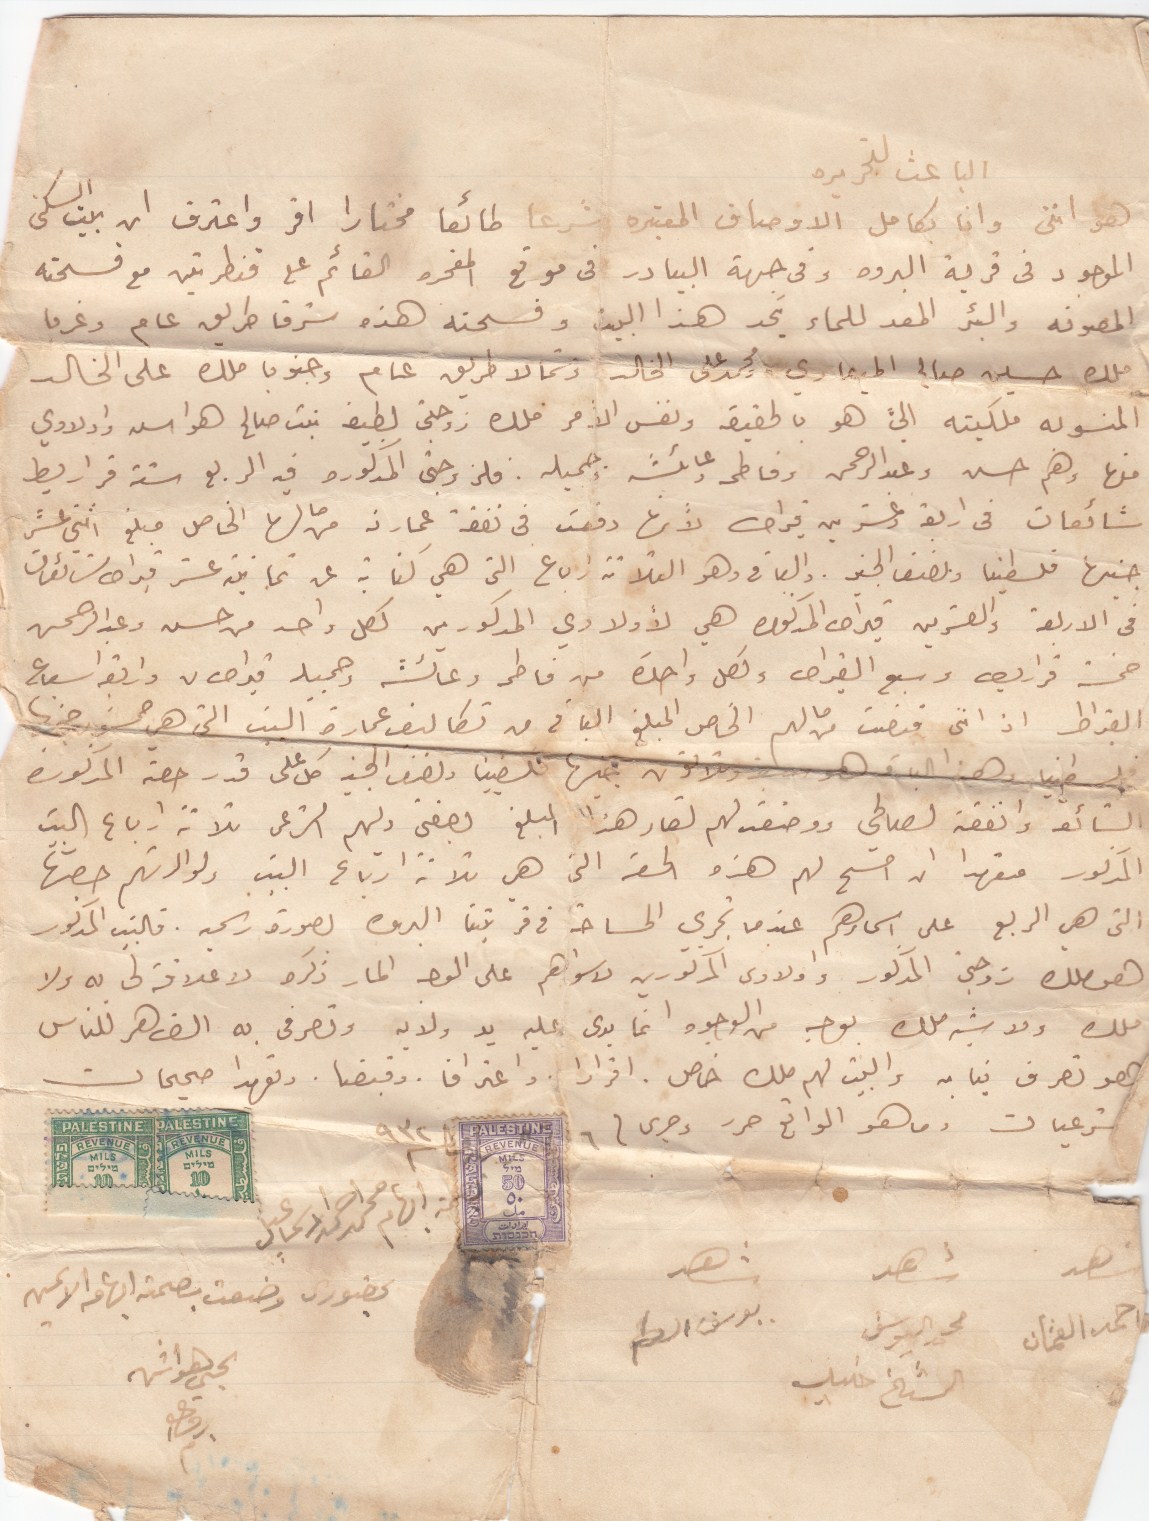 الباعث لتحريره
هو انني وانا بكامل الاوصاف المعتبره شرعا طائعا مختارا اقر واعترف ان بيت السكنى
الموجود في قرية البروه وفي جهة البيادر في موقع القائم على قنطرتين مع فسحته
المصونه والبئر المعد للماء يحد هذا البيت وفسحته هذه شرقا طريق عام وغربا
ملك حسين صالح ومحمد علي الخالد وشمالا طريق عام وجنوبا ملك علي الخالد
المنسوبه ملكيته اليّ هو بالحقيقه ونفس الأمر ملك زوجتي لطيفه بنت صالح هواش واولادي
منها وهم حسن وعبد الرحمن وفاطمه وعائشه وجميله . فلزوجتي المذكوره فيه الربع ستة قراريط
شائعات في اربعة وعشرين قيراط لأنها دفعت في نفقة عمارته من مالها الخاص مبلغ اثني عشر
جنيها فلسطينيا ونصف الجنيه . والباقي وهو الثلاثة ارباع التي هي كناية عن ثمانية عشر قيراط شائعات
في الاربعة والعشرين قيراط المذكوره هي لأولادي المذكورين لكل واحد من حسن وعبد الرحمن
خمسة قراريط وسبع القيراط ولكل واحدة من فاطمه وعائشه وجميله قيراطان واربعة اسباع
القيراط اذ انني قبضت من مالهم الخاص المبلغ الباقي من تكاليف عمارة البيت التي هي خمسون جنيها
فلسطينيا وهذا الباقي هو سبعة وثلاثون جنيها فلسطينيا ونصف الجنيه كل على قدر حصته المذكوره
الشائعة وانفقته لصالحي ووضعت لهم لقاء هذا المبلغ بصفتي وليهم الشرعي ثلاثة ارباع البيت
المذكور متعهدا ان اسجل لهم هذه الحصة التي هي ثلاثة ارباع البيت ولوالدتهم حصتها
التي هي الربع على اسماؤهم عندما تجري المساحة في قريتنا البروه بصورة رسميه . فالبيت المذكور
هو ملك زوجتي المذكور واولادي المذكورين لا سواهم على الوجه المار ذكره لا علاقة لي به ولا
ملك ولا شبه ملك بوجه من الوجوه انما يدي عليه يد ولايه وتصرفي به الظاهر للناس
هو تصرف نيابه والبيت لهم ملك خاص . اقرارا . واعترافا . وقبضا . وتعهدا صحيحات
شرعيات وما هو الواقع حرر وجرى في ٦ ٩٣٢
PALESTINE
REVENUE
MILS
מילים
10
PALESTINE
REVENUE
MILS
מילים
10
PALESTINE
REVENUE
MILS
מיל
50
٥٠
مل
ايرادات
הכנסות
ابهام محمد
بحضوري وضعت بصمة ابهامه الايمن
يحيى هواش
شاهد
احمد العثمان
شاهد
محمد اليونس
الشيخ خليل
شاهد